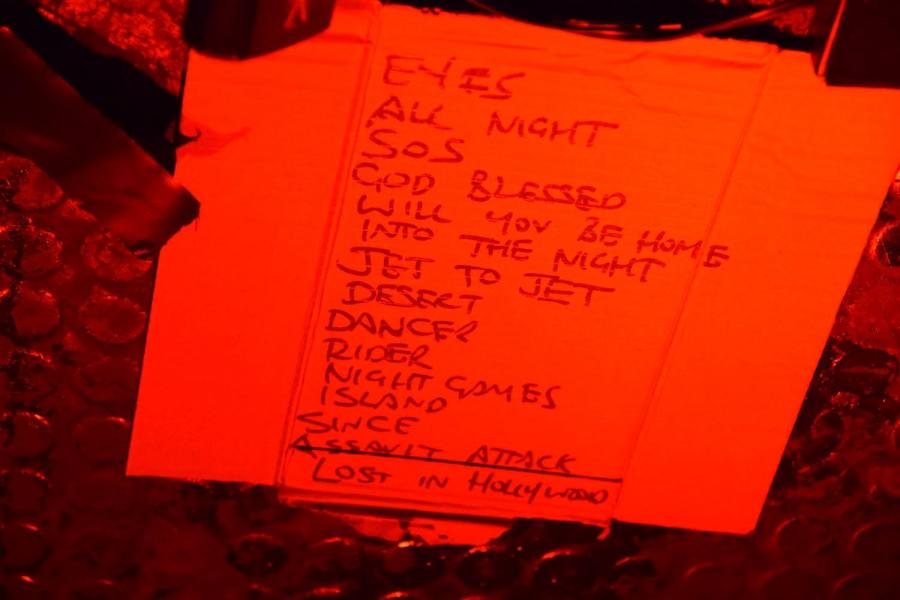 EYES
ALL NIGHT
SOS
GOD BLESSED
WILL YOU BE HOME
INTO THE NIGHT
JET TO JET
DESERT
DANCER
RIDER
NIGHT GAMES
ISLAND
SINCE
ASSAULT ATTACK
LOST IN HOLLYWOOD